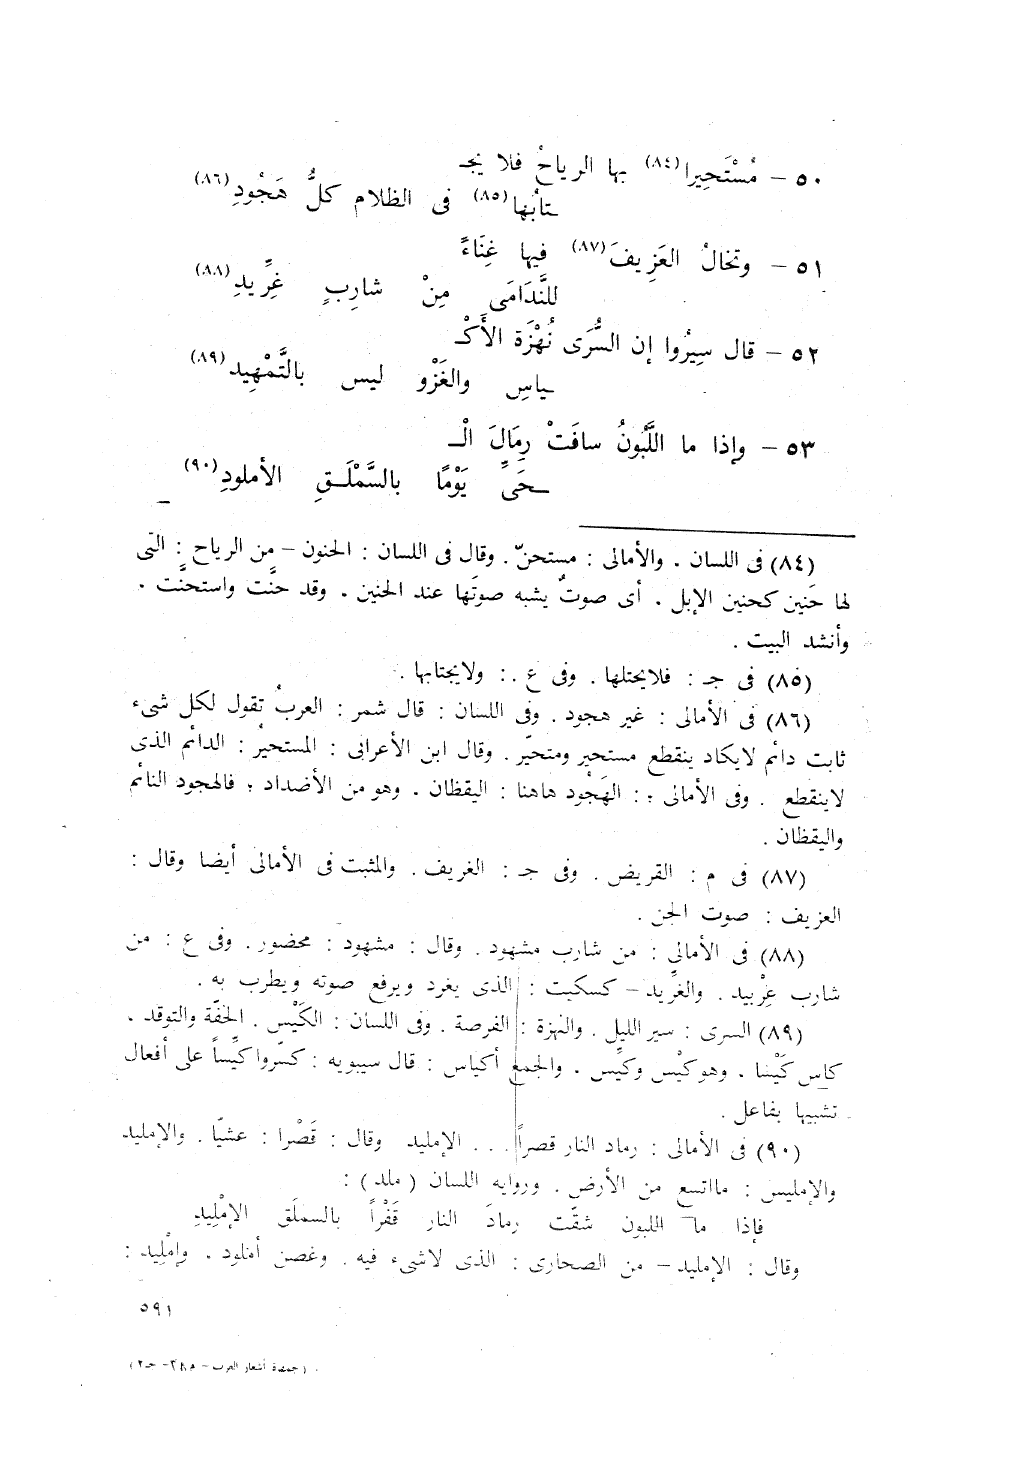 ٥٠ – مُسْتَحِيرا(٨٤) بها الرياحُ فلا يجـ
ـتابُها(٨٥) فى الظلام كلُّ هَجْودِ(٨٦)
٥١ – وتخالُ العَزِيفَ(٨٧) فيها غِنَاءً
للنَّدَامَى مِنْ شارِبٍ غِرِّيدِ(٨٨)
٥٢ – قال سِيرُوا إن السُّرَى نُهْزَة الأَكْـ
ـياسِ والغَزْو ليس بالتَّمْهِيد(٨٩)
٥٣ – وإذا ما اللَّبُونُ سافَتْ رِمَالَ الْـ
ـحَىِّ يَوْمًا بالسَّمْلَـقِ الأملودِ(٩٠)
(٨٤) فى اللسان . والأمالى : مستحنّ . وقال فى اللسان : الحنون – من الرياح : التى
لها حَنين كحنين الإبل . أى صوتٌ يشبه صوتَها عند الحنين . وقد حنَّت واستحنَّت .
وأنشد البيت .
(٨٥) فى جـ : فلايحتلها . وفى ع . : ولايجتابها .
(٨٦) فى الأمالى : غير هجود . وفى اللسان : قال شمر : العربُ تقول لكل شىء
ثابت دائم لايكاد ينقطع مستحير ومتحيّر . وقال ابن الأعرابى : المستحيرُ : الدائم الذى
لاينقطع . وفى الأمالى : الهَجْود هاهنا : اليقظان . وهو من الأضداد ؛ فالهجود النائم
واليقظان .
(٨٧) فى م : القريض . وفى جـ : الغريف . والمثبت فى الأمالى أيضا وقال :
العزيف : صوت الجن .
(٨٨) فى الأمالى : من شارب مشهود . وقال : مشهود : محضور . وفى ع : من
شارب عِرْبيد . والغرِّيد – كسكيت : الذى يغرد ويرفع صوته ويطرب به .
(٨٩) السرى : سير الليل . والنهزة : الفرصة . وفى اللسان : الكَيْس . الخفّة والتوقد .
كاس كَيْسا . وهو كيْس وكيِّس . والجمع أكياس : قال سيبويه : كسّروا كيِّساً على أفعال
تشبيها بفاعل .
(٩٠) فى الأمالى : رماد النار قصراً . . . الإمليد وقال : قَصْرا : عشيّا . والإمليد
والإمليس : مااتسع من الأرض . ورواية اللسان ( ملد ) :
فإذا ما اللبون شقَّت رمادَ النار قَفْراً بالسملَق الإمْلِيدِ
وقال : الإمليد – من الصحارى : الذى لاشىء فيه . وغصن أملود . وإمْلِيد :
٥٩١
( جمهرة أشعار العرب – م٣٨ – جـ٢ )